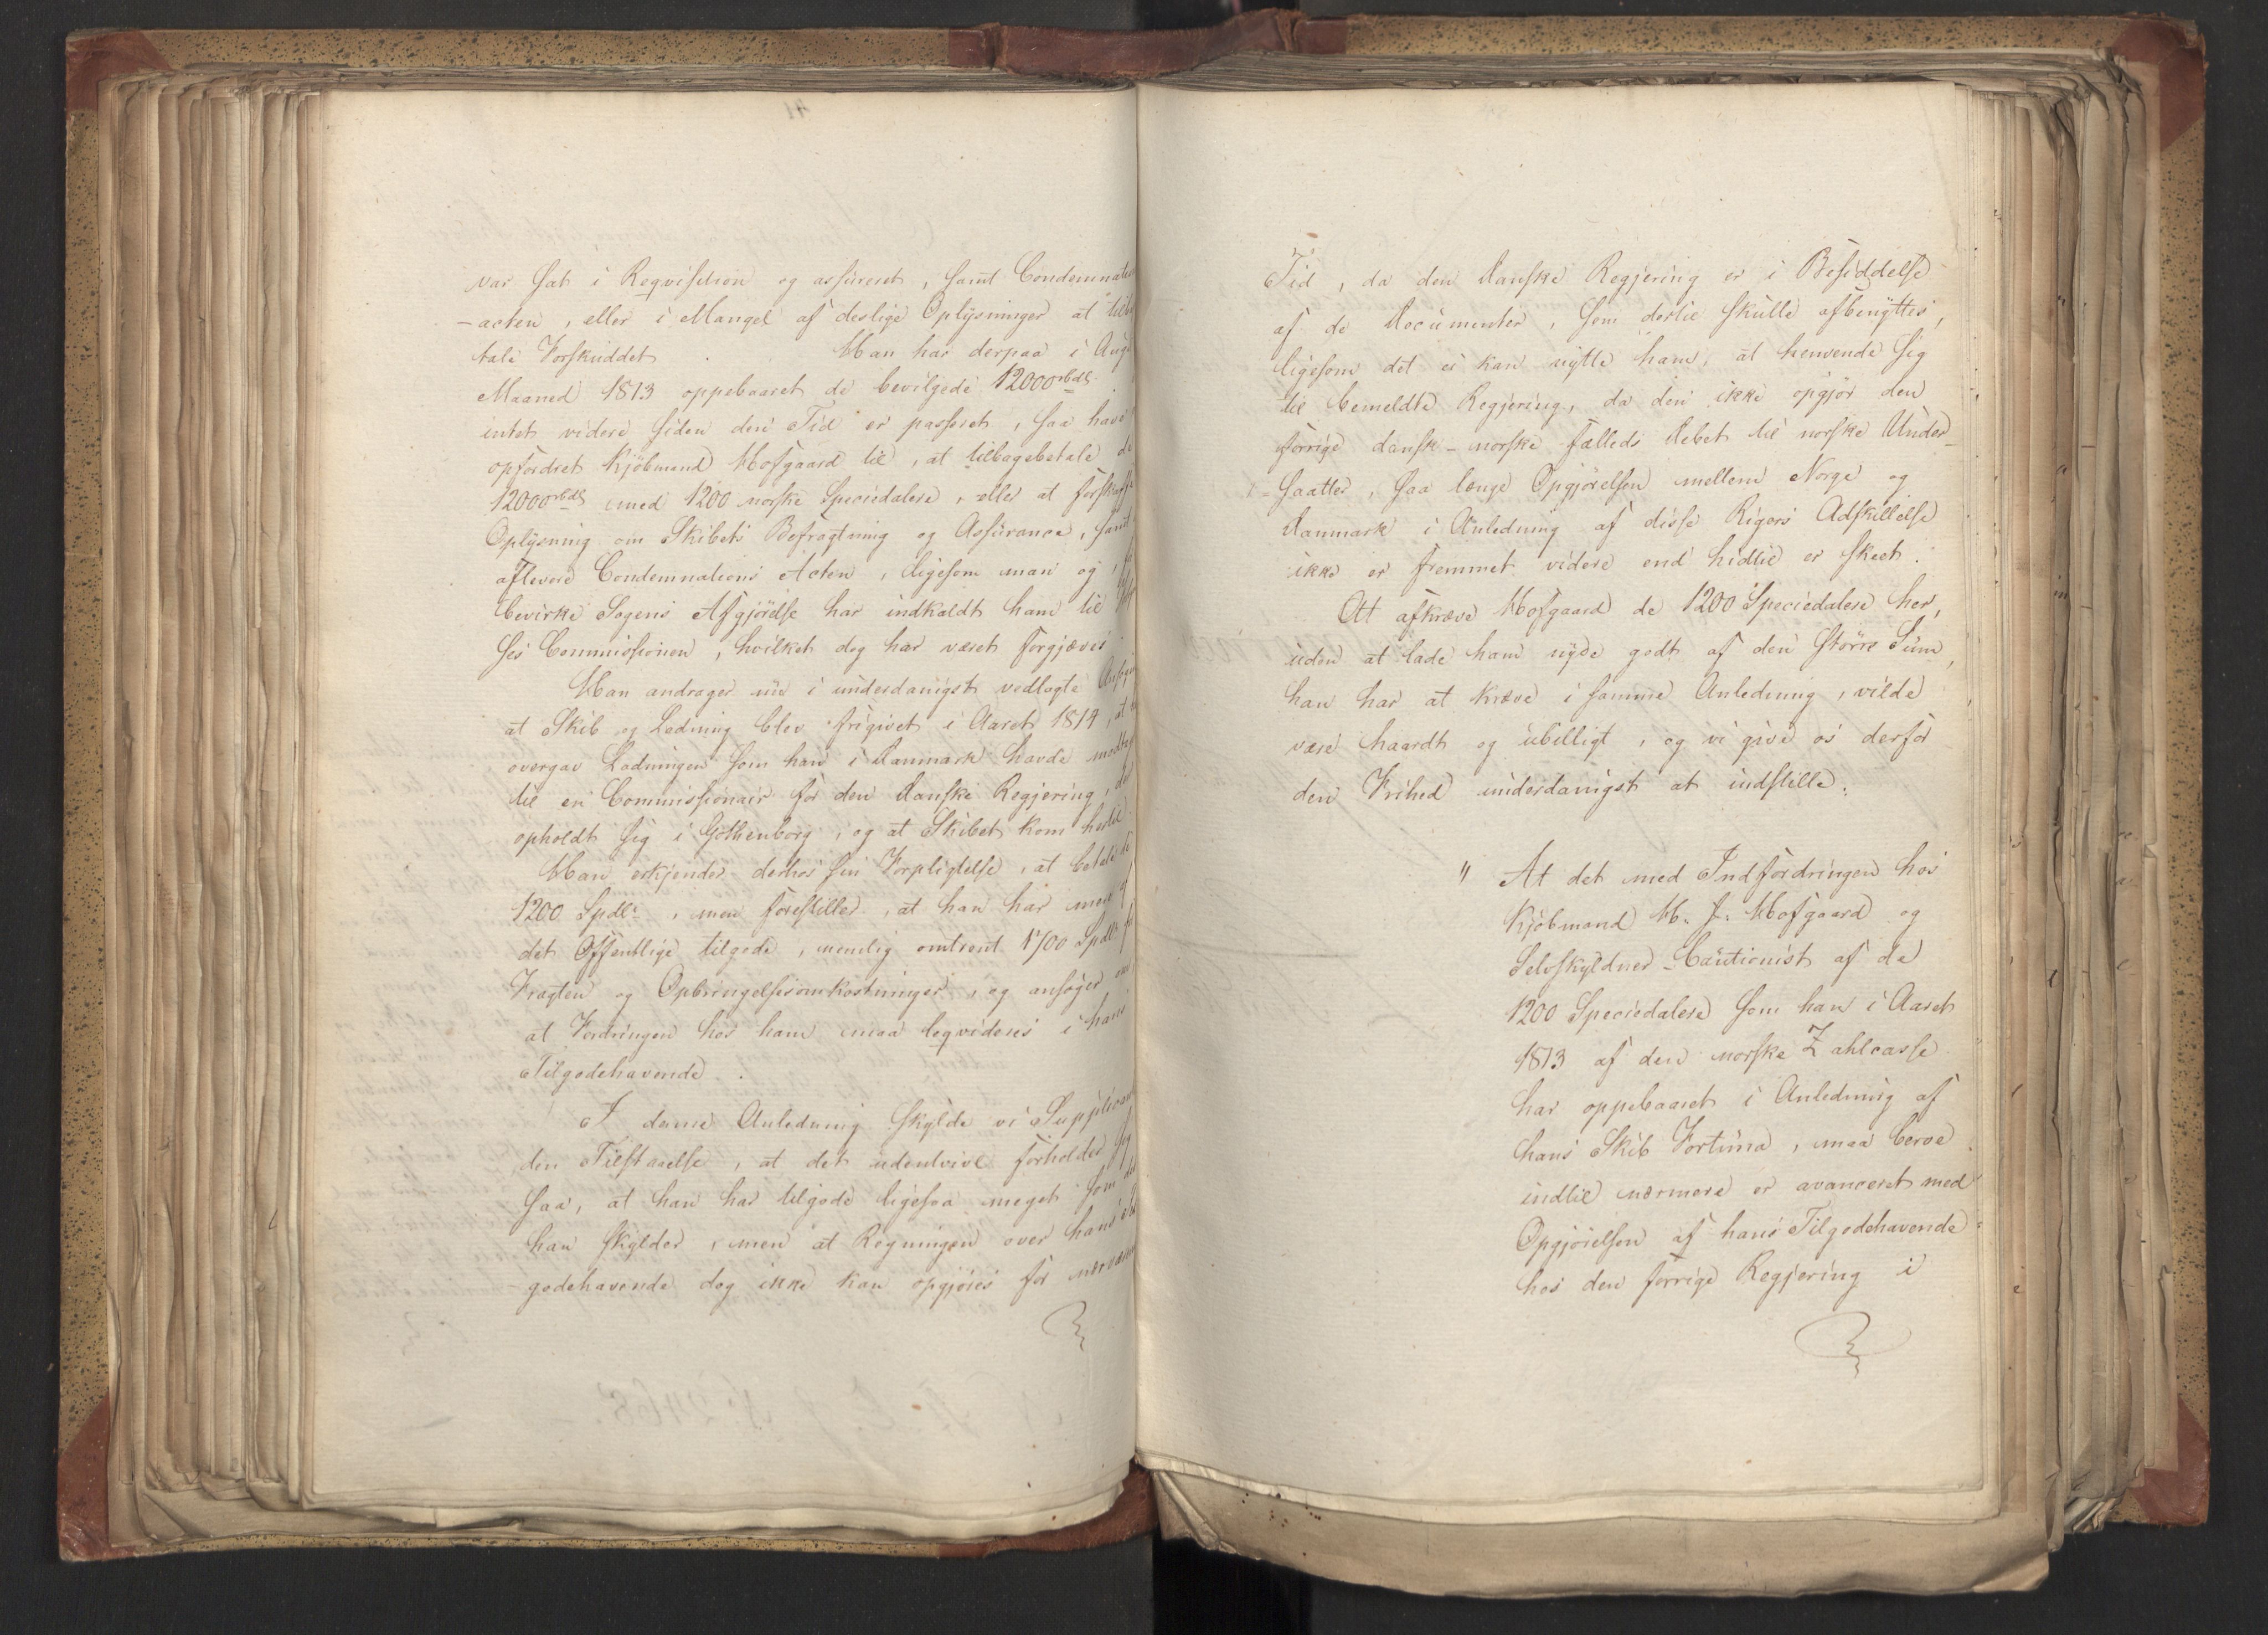 var sat i Reqvisition og assureret, samt Condemnation
-acten, eller i Mangel af deslige Oplysninger at tilbe
tale Forskuddet. Man har derpaa i Aug
Maaned 1813 oppebaaret de bevilgede 12000 rbdl.
intet videre siden den Tid er passeret, saa have
opfordret Kjøbmand Mofgaard til, at tilbagebetale de
12000 rbdl med 1200 norske Speciedalere, eller at forskaffe
Oplysning om Skibets Befragtning og Assurance, samt
aflevere Condemnations Acten, ligesom man og,
bevirke Sagens Afgjørelse har indkaldt ham til
ses Commissionen, hvilket dog har været forgjæves
Man andrager nu i underdanigst vedlagte
at Skib og Ladning blev frigivet i Aaret 1814, at
overgav Ladningen som han i Danmark havde modtag
til en Commissionair for den danske Regjering, der
opholdt sig i Gothenborg, og at Skibet kom hertil
Man erkjender derhos sin Forpligtelse, at betale de
1200 Spdlr, men forestiller, at han har mere af
det Offentlige tilgode, nemlig omtrent 1700 Spdlr for
Fragten og Opbringelsesomkostninger, og ansøger om
at Fordringen hos ham maa liqvideres i hans
Tilgodehavende.
I denne Anledning skylde vi Supplicanten
den Tilstaaelse, at det udentvivl forholder sig
saa, at han har tilgode ligesaa meget som det
han skylder, men at Regningen over hans Til
godehavende dog ikke kan opgjøres for nærværende
Tid, da den danske Regjering er i Besiddelse
af de Documenter, som dertil skulle afbenyttes,
ligesom det ei kan nytte ham, at henvende sig
til bemeldte Regjering, da den ikke opgjør den
forrige dansk-norske fælleds Debet til norske Under-
saatter, saa længe Opgjørelsen mellem Norge og
Danmark i Anledning af disse Rigers Adskillelse
ikke er fremmet videre end hidtil er skeet.
At afkræve Mofgaard de 1200 Speciedalere her,
uden at lade ham nyde godt af den større Sum,
han har at kræve i samme Anledning, vilde
være haardt og ubilligt, og vi give os derfor
den Frihed underdanigst at indstille:
" At det med Indfordringen hos
Kjøbmand M. J. Mofgaard og
Selvskyldner-Cautionist af de
1200 Speciedalere som han i Aaret
1813 af den norske Zahlcasse
har oppebaaret i Anledning af
hans Skib Fortuna, maa beroe
indtil nærmere er avanceret med
Opgjørelsen af hans Tilgodehavende
hos den forrige Regjering i